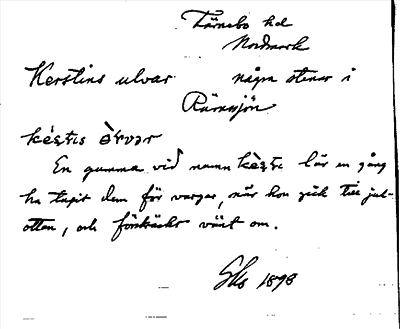 Värmebo hd
Nordmark
Kerstins ulvar några stenar i
Rännsjön
kèstis òrvar
En gumma vid namn kèsti lär en gång
ha tagit dem för vargar, när hon gick till jul-
ottan, och förskräckts värst om.
SKs 1898